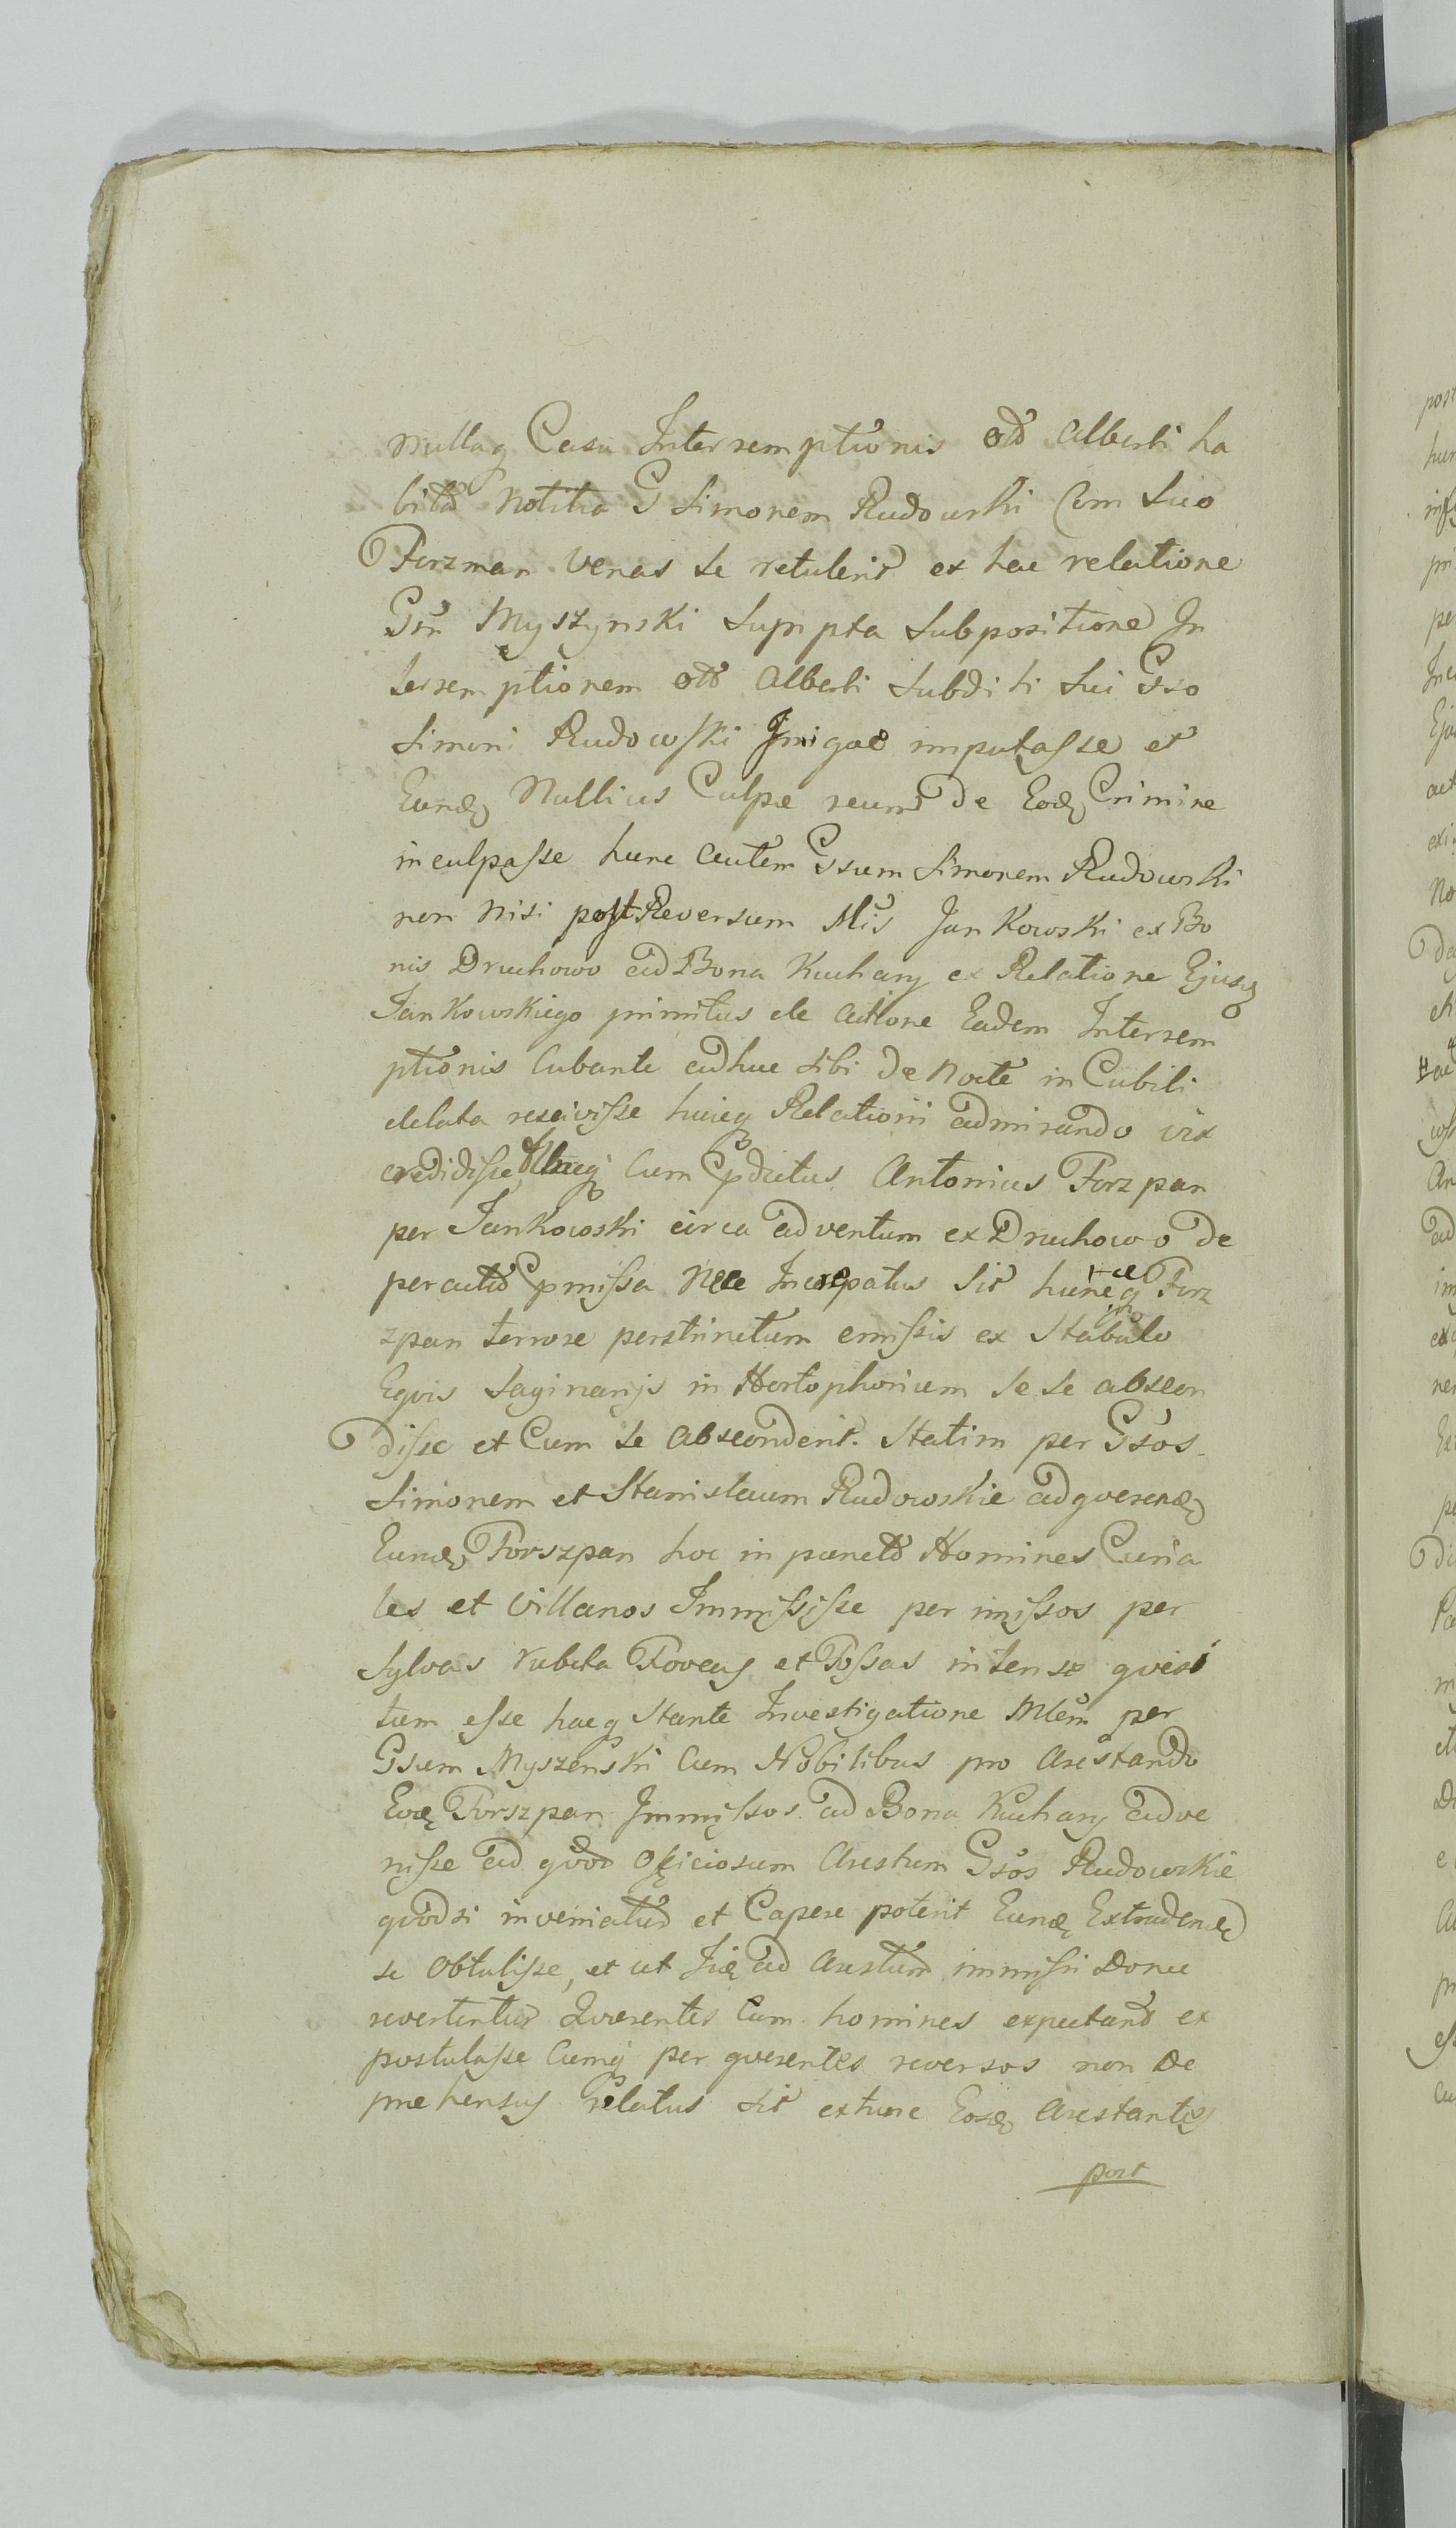 nullaq Casu Interremptionis olō Alberti ha
bitō notitia G Simonem Rudowski Cum Suo
Forzman Venas se retulerit ex hac relatione
Gsn Myszynski Sumpta Subpositione In
terremptionem olō Alberti Subditi Sui Gso
Simoni Rudowski imputasse et
Eundē Nullius Culpæ reum de Eodē Crimine
inculpasse hunc autem Gsum Simonem Rudowski
non nisi post Reversum Mis Jankowski ex Bo
nis Druchowo ad Bona Kuchary ex Relatione Ejusq
Jankowskiego primitus de actione Eadem Interrem
ptionis Cubante adhuc sibi de Nocte in Cubili
delata rescivisse huicq Relationi admirando vix
credidisse Cum pdictus Antonius Forzpan
per Jankowski circa adventum ex Druchowo de
percutiō pmissa Nec Increpatus Sit Forz
zpan terrore perstrinctum emissis ex Stabulo
Eqvis Saginarijs in Hortophorium Se se abscon
disse et Cum se absconderit. Statim per Gsos
Simonem et Stanislaum Rudowskie ad qverendē
Eundē Forszpan hoc in punctō Homines Curia
les et Villanos Immisisse per imissos per
Sylvas rubeta Foveas et Fossas intense qvesi
tum esse hacq Stante Investigatione Mlem per
Gsum Myszenski Cum Nobilibus pro Arestando
Eodē Forszpan Immissos ad Bona Kuchary adve
nisse ad qvod Officiosum Arestum Gsos Rudowskie
qvodsi inveniatur et Capere poterit Eundē Extradendē
se Obtulisse, et ut ad Arestum immissi Donec
revertentur Qverentes Cum homines expectant ex
postulasse Cumq per qverentes reversos non De
prehensus relatus sit extunc Eosdē Arestantes
post